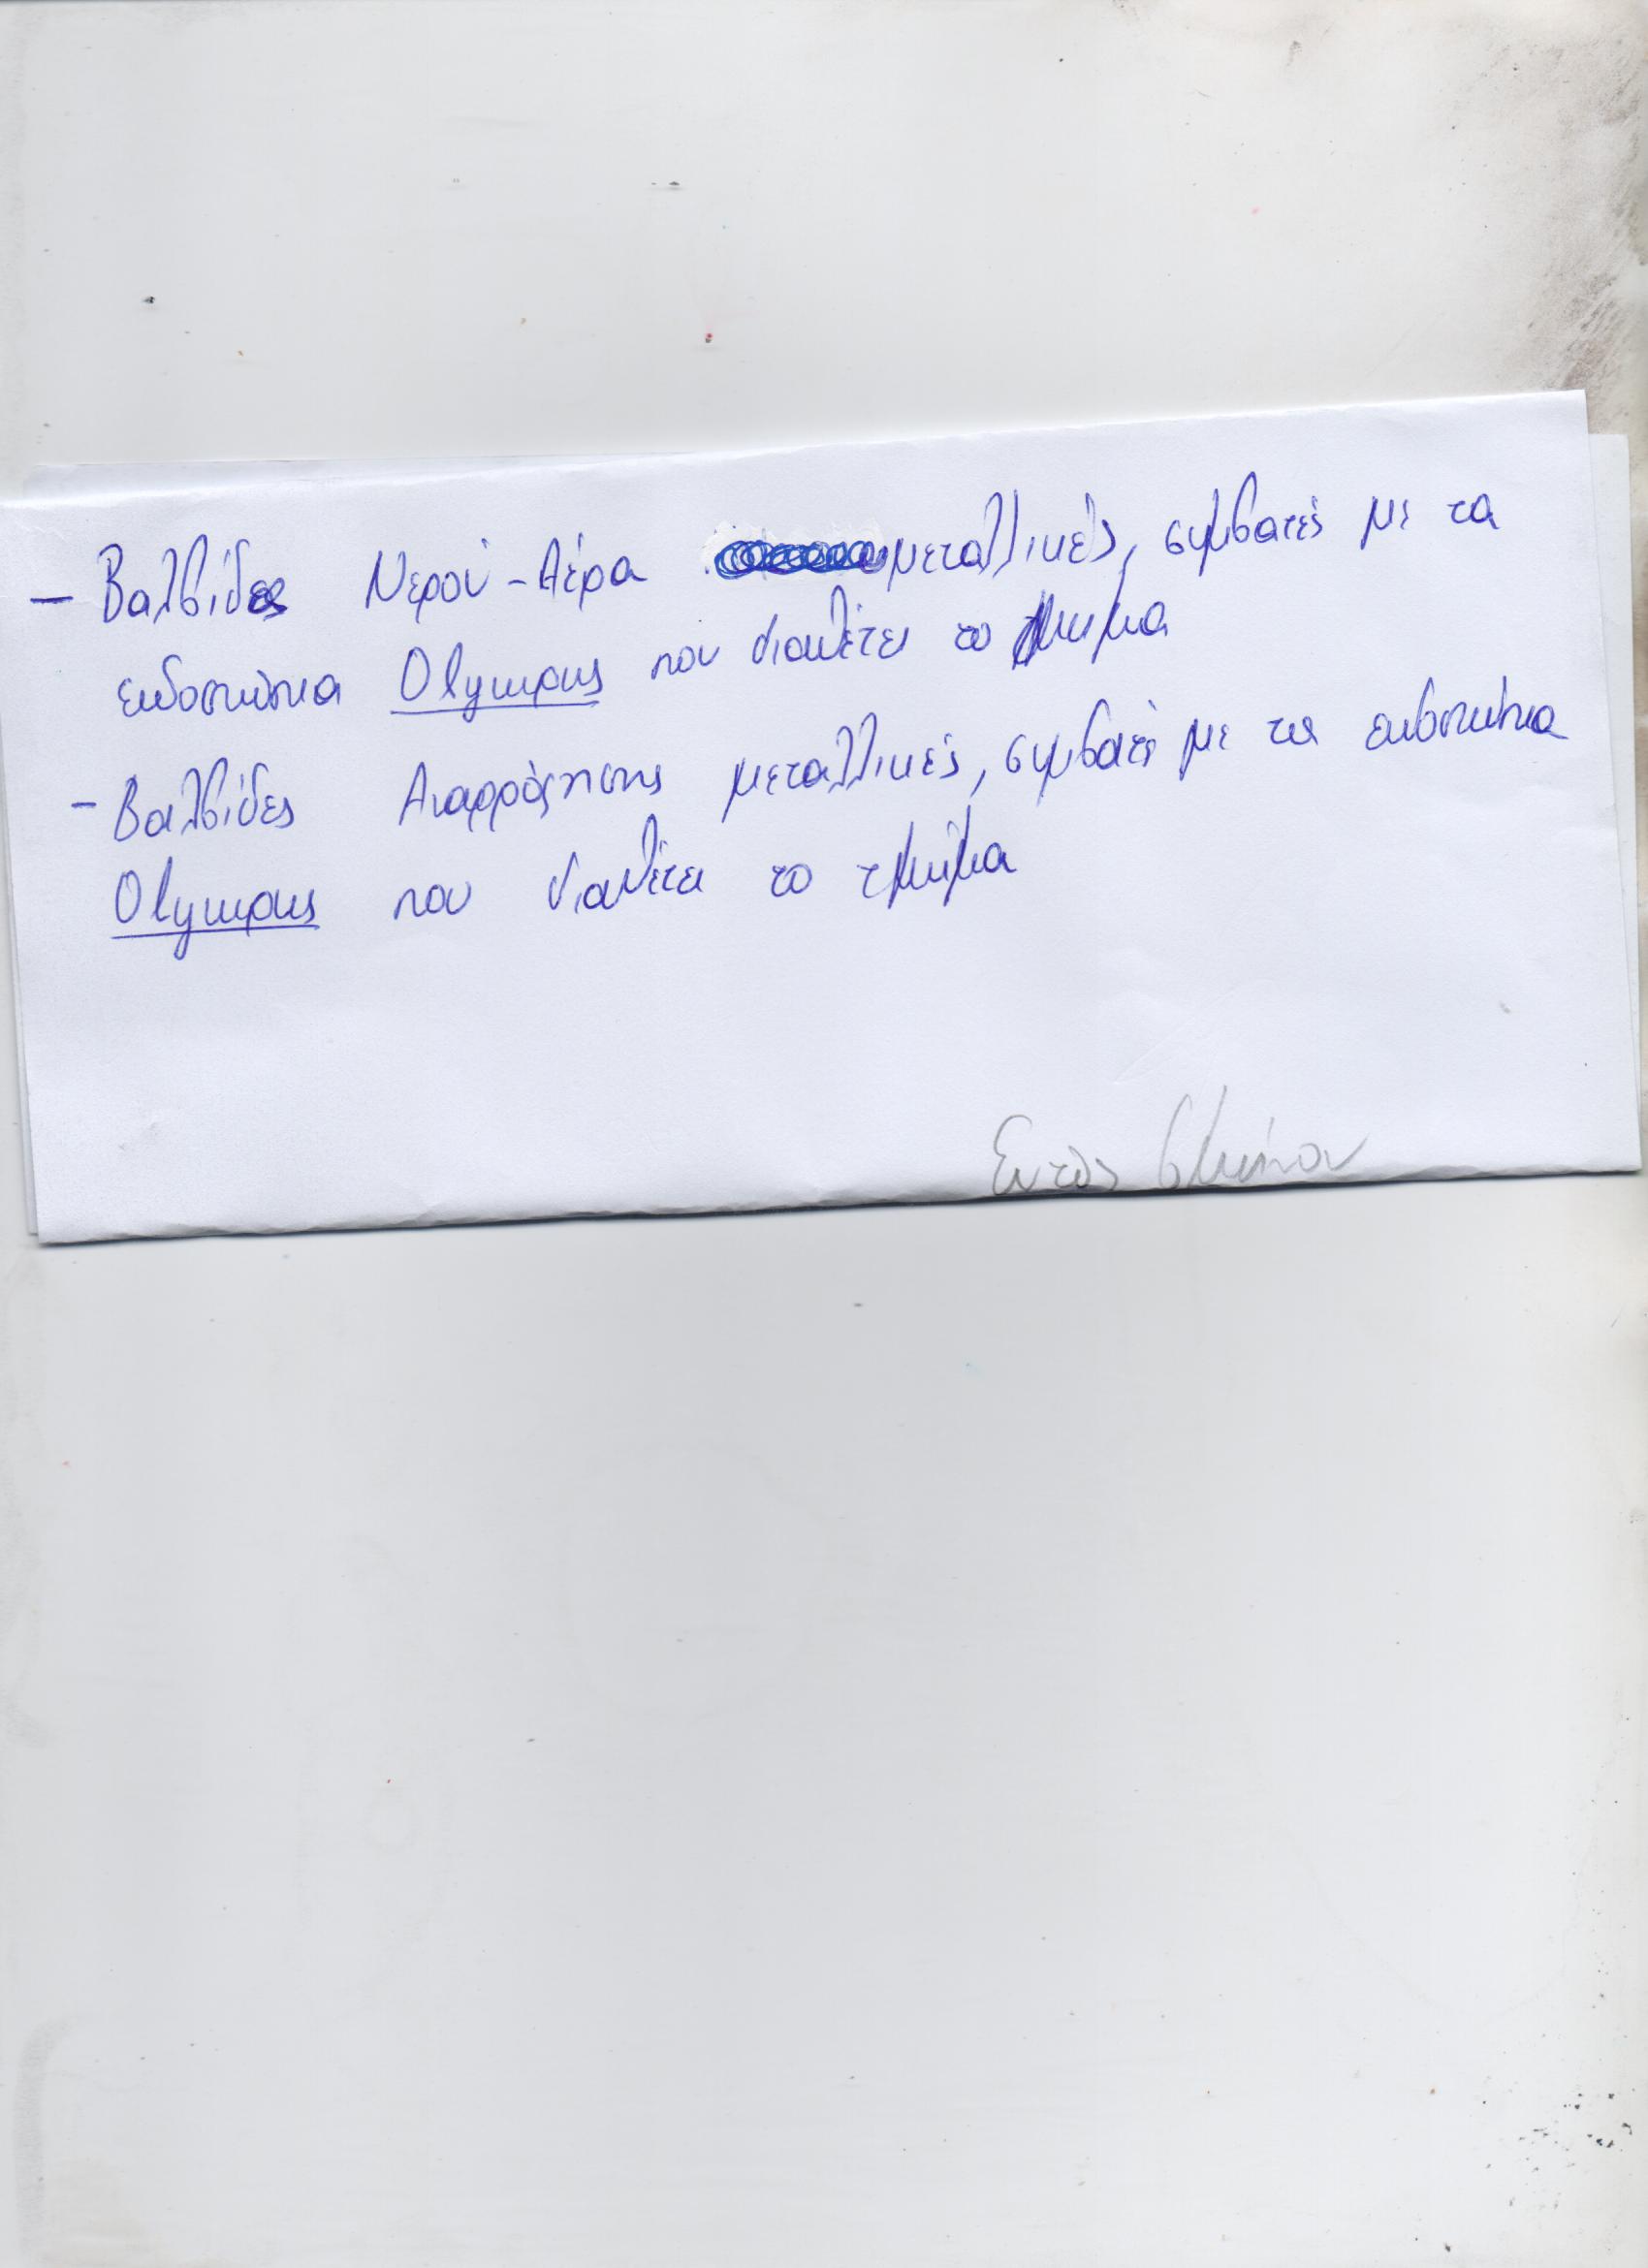 - Βαλβίδες Νερού - Αέρα μεταλλικές, συμβατές με τα
ενδοσκόπια Olympus που διαθέτει το τμήμα
- Βαλβίδες Αναρρόφησης μεταλλικές, συμβατές με τα ενδοσκόπια
Olympus που διαθέτει το τμήμα
Εντός